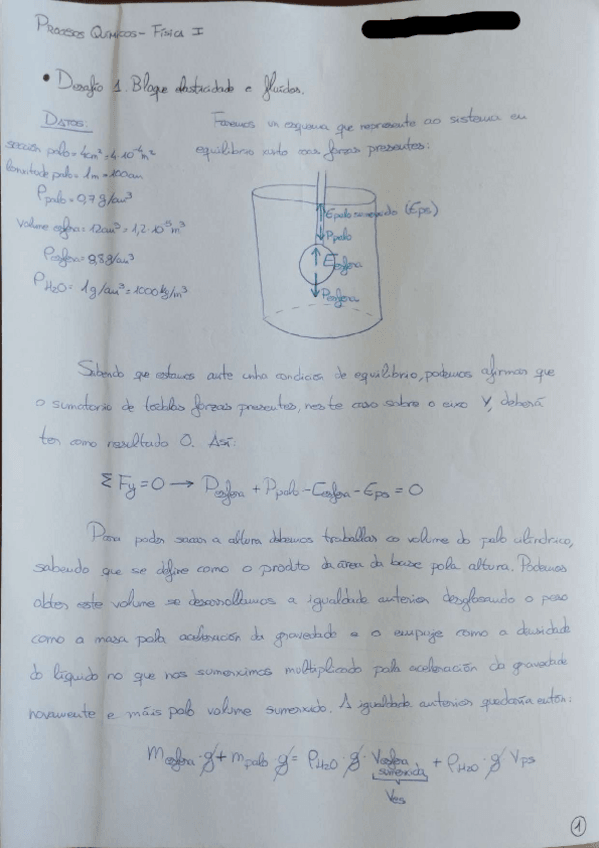 Procesos Químicos - Física I
• Desafío 1. Bloque elasticidade e fluídos.
DATOS:
sección palo = 4cm² = 4·10⁻⁴m²
lonxitude palo = 1m = 100cm
ρpalo = 0,7 g/cm³
volume esfera = 12cm³ = 1,2·10⁻⁵m³
ρesfera = 8,8g/cm³
ρH2O = 1g/cm³ = 1000kg/m³
Facemos un esquema que represente ao sistema en
equilibrio xunto coas forzas presentes:
Epalo sumerxido (Eps)
Ppalo
Eesfera
Pesfera
Sabendo que estamos ante unha condición de equilibrio, podemos afirmar que
o sumatorio de tódalas forzas presentes, neste caso sobre o eixo Y, deberá
ter como resultado 0. Así:
ΣFy = 0 → Pesfera + Ppalo - Eesfera - Eps = 0
Para poder sacar a altura debemos traballar co volume do palo cilíndrico,
sabendo que se define como o produto da área da base pola altura. Podemos
obter este volume se desenrollamos a igualdade anterior desglosando o peso
como a masa pola aceleración da gravedade e o empuje como a densidade
do líquido no que nos sumerximos multiplicado pola aceleración da gravedade
novamente e máis polo volume sumerxido. A igualdade anterior quedaría entón:
mesfera · g + mpalo · g = ρH2O · g · Vesfera sumerxida + ρH2O · g Vps
Ves
1